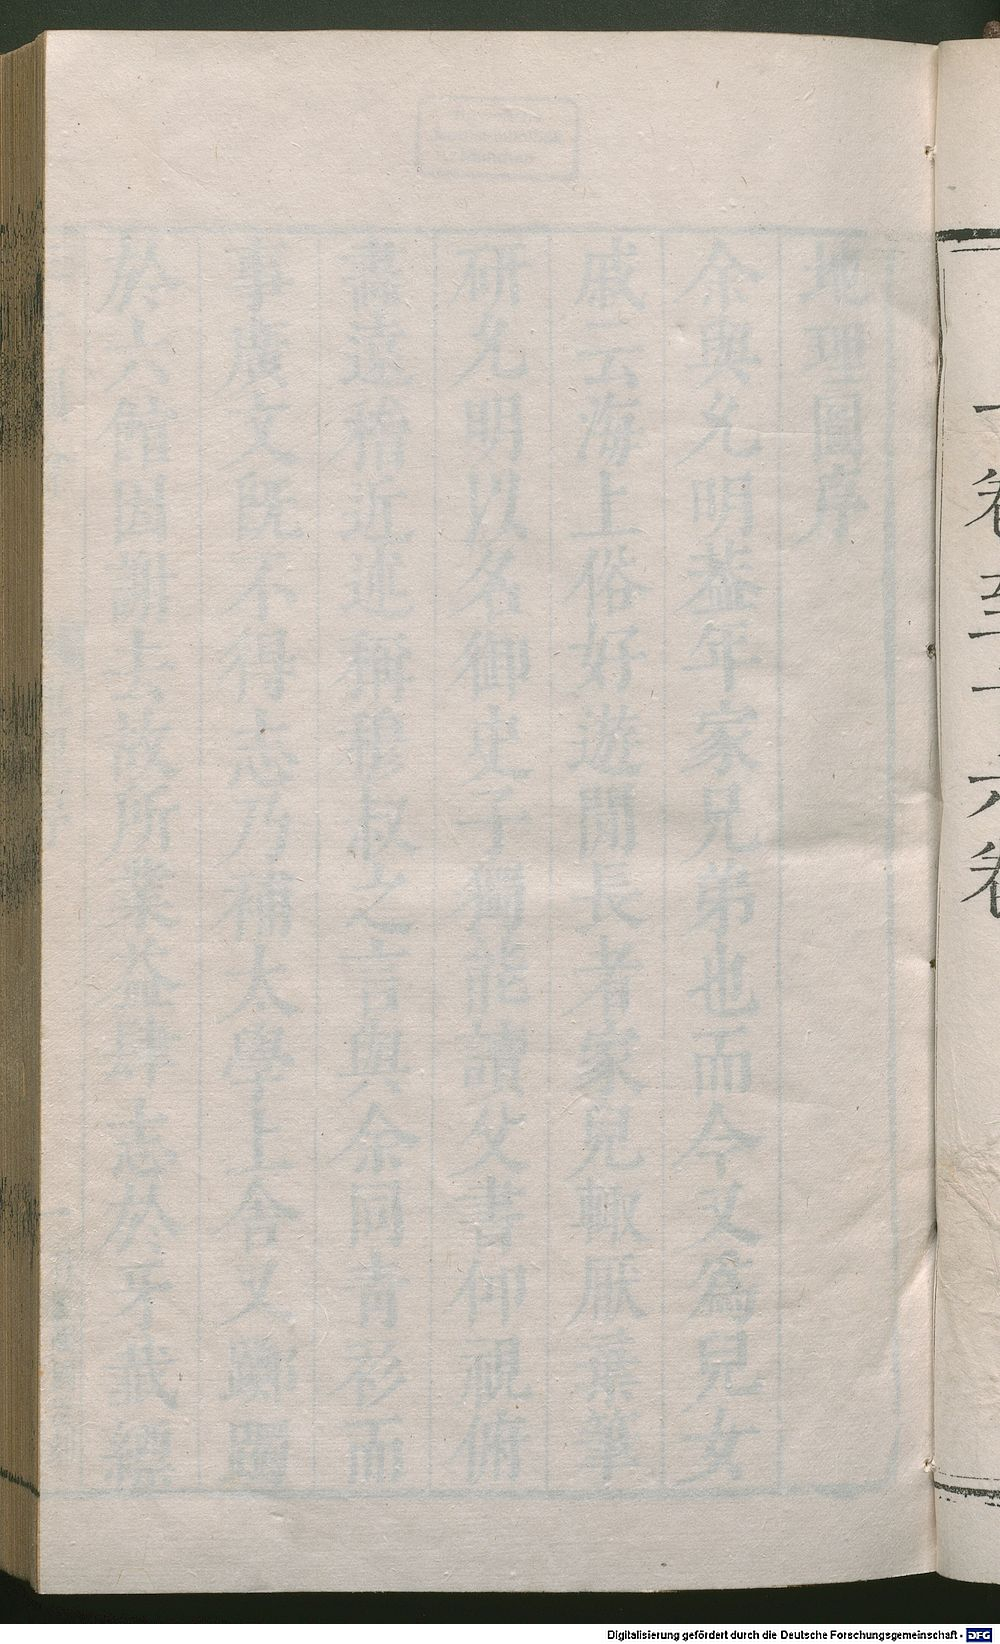 地理圖序
余與允明葢年家兄弟也而今又爲兒女
戚云海上俗好遊閒長者家兒輙厭棄筆
研允明以名御史子獨能讀父書仰視俯
遠稽近述稱穆叔之言與余同青衫而
事廣文旣不得志乃補太學上舍又躑躅
於六館因謝去故所業益肆志於牙籤縹
卷至十六卷
Digitalisierung gefördert durch die Deutsche Forschungsgemeinschaft - DFG